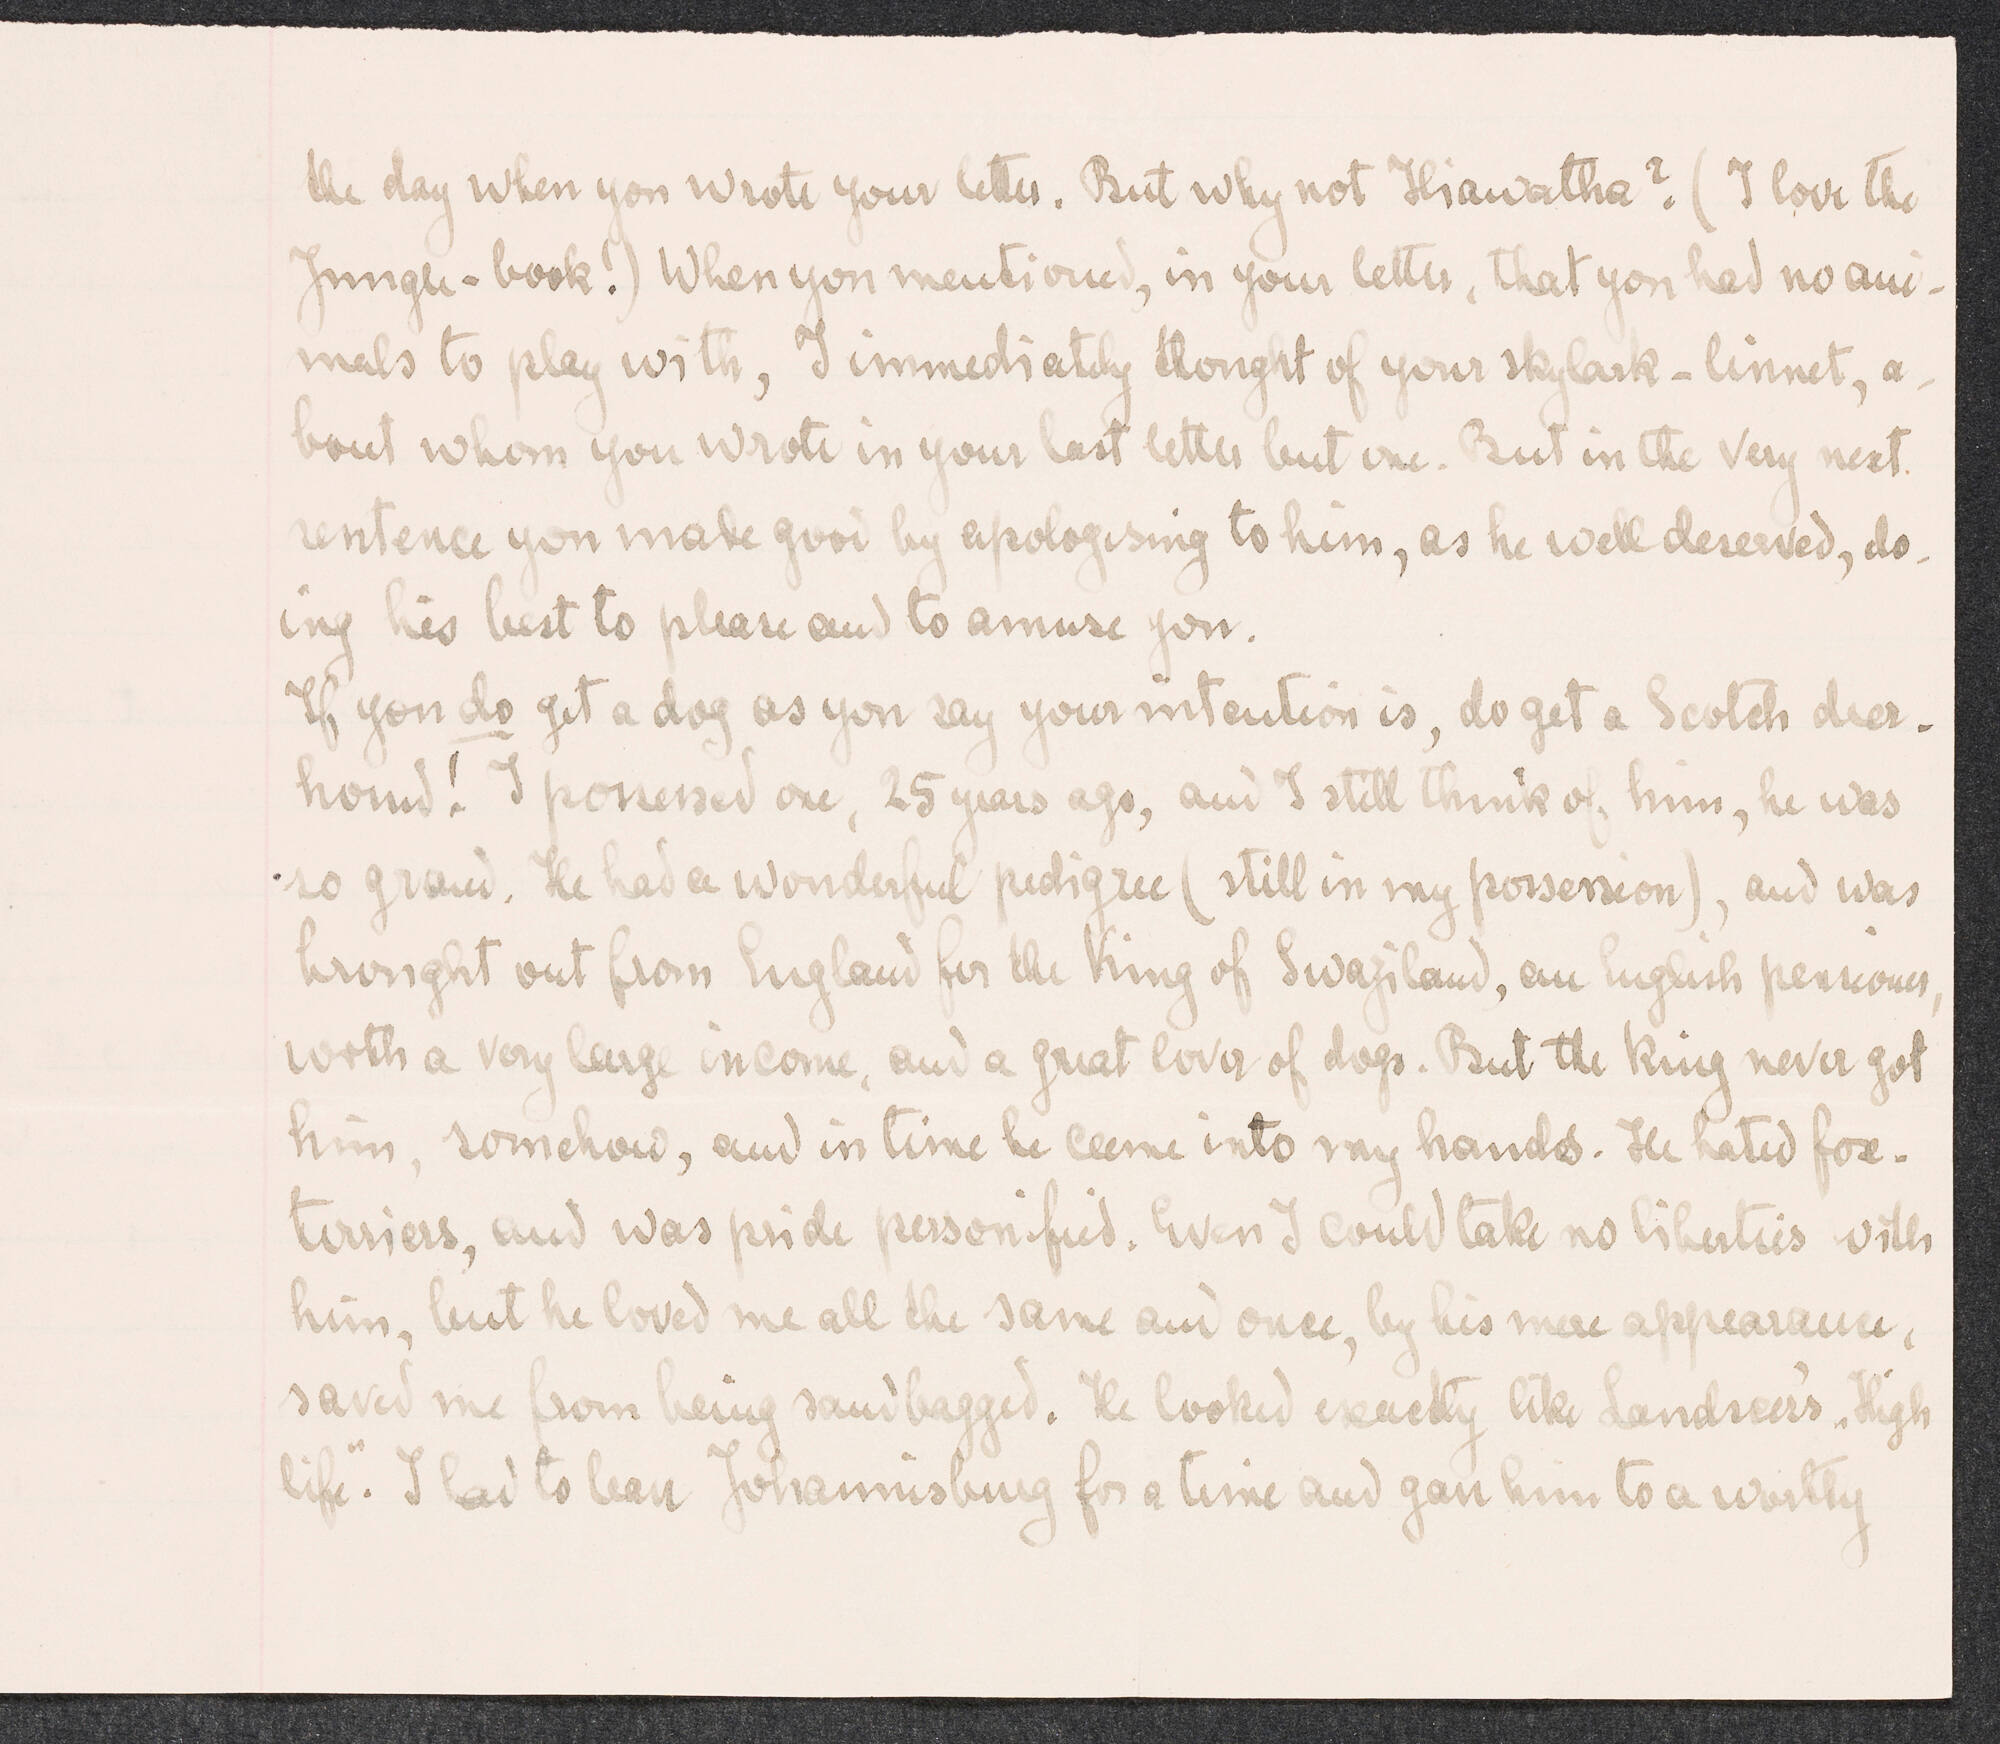 the day when you wrote your letter. But why not Hiawatha? (I love the
Jungle-book!) When you mentioned, in your letter, that you had no ani-
mals to play with, I immediately thought of your skylark-linnet, a-
bout whom you wrote in your last letter but one. But in the very next
sentence you make good by apologising to him, as he well deserved, do-
ing his best to please and to amuse you.
If you do get a dog as you say your intention is, do get a Scotch deer-
hound! I possessed one, 25 years ago, and I still think of him, he was
so grand. He had a wonderful pedigree (still in my possession), and was
brought out from England for the King of Swaziland, an English pensioner,
worth a very large income, and a great lover of dogs. But the King never got
him, somehow, and in time he came into my hands. He hated fox-
terriers, and was pride personified. Even I could take no liberties with
him, but he loved me all the same and once, by his mere appearance,
saved me from being sandbagged. He looked exactly like Landseer's „High
life". I had to leave Johannisburg for a time and gave him to a worthy